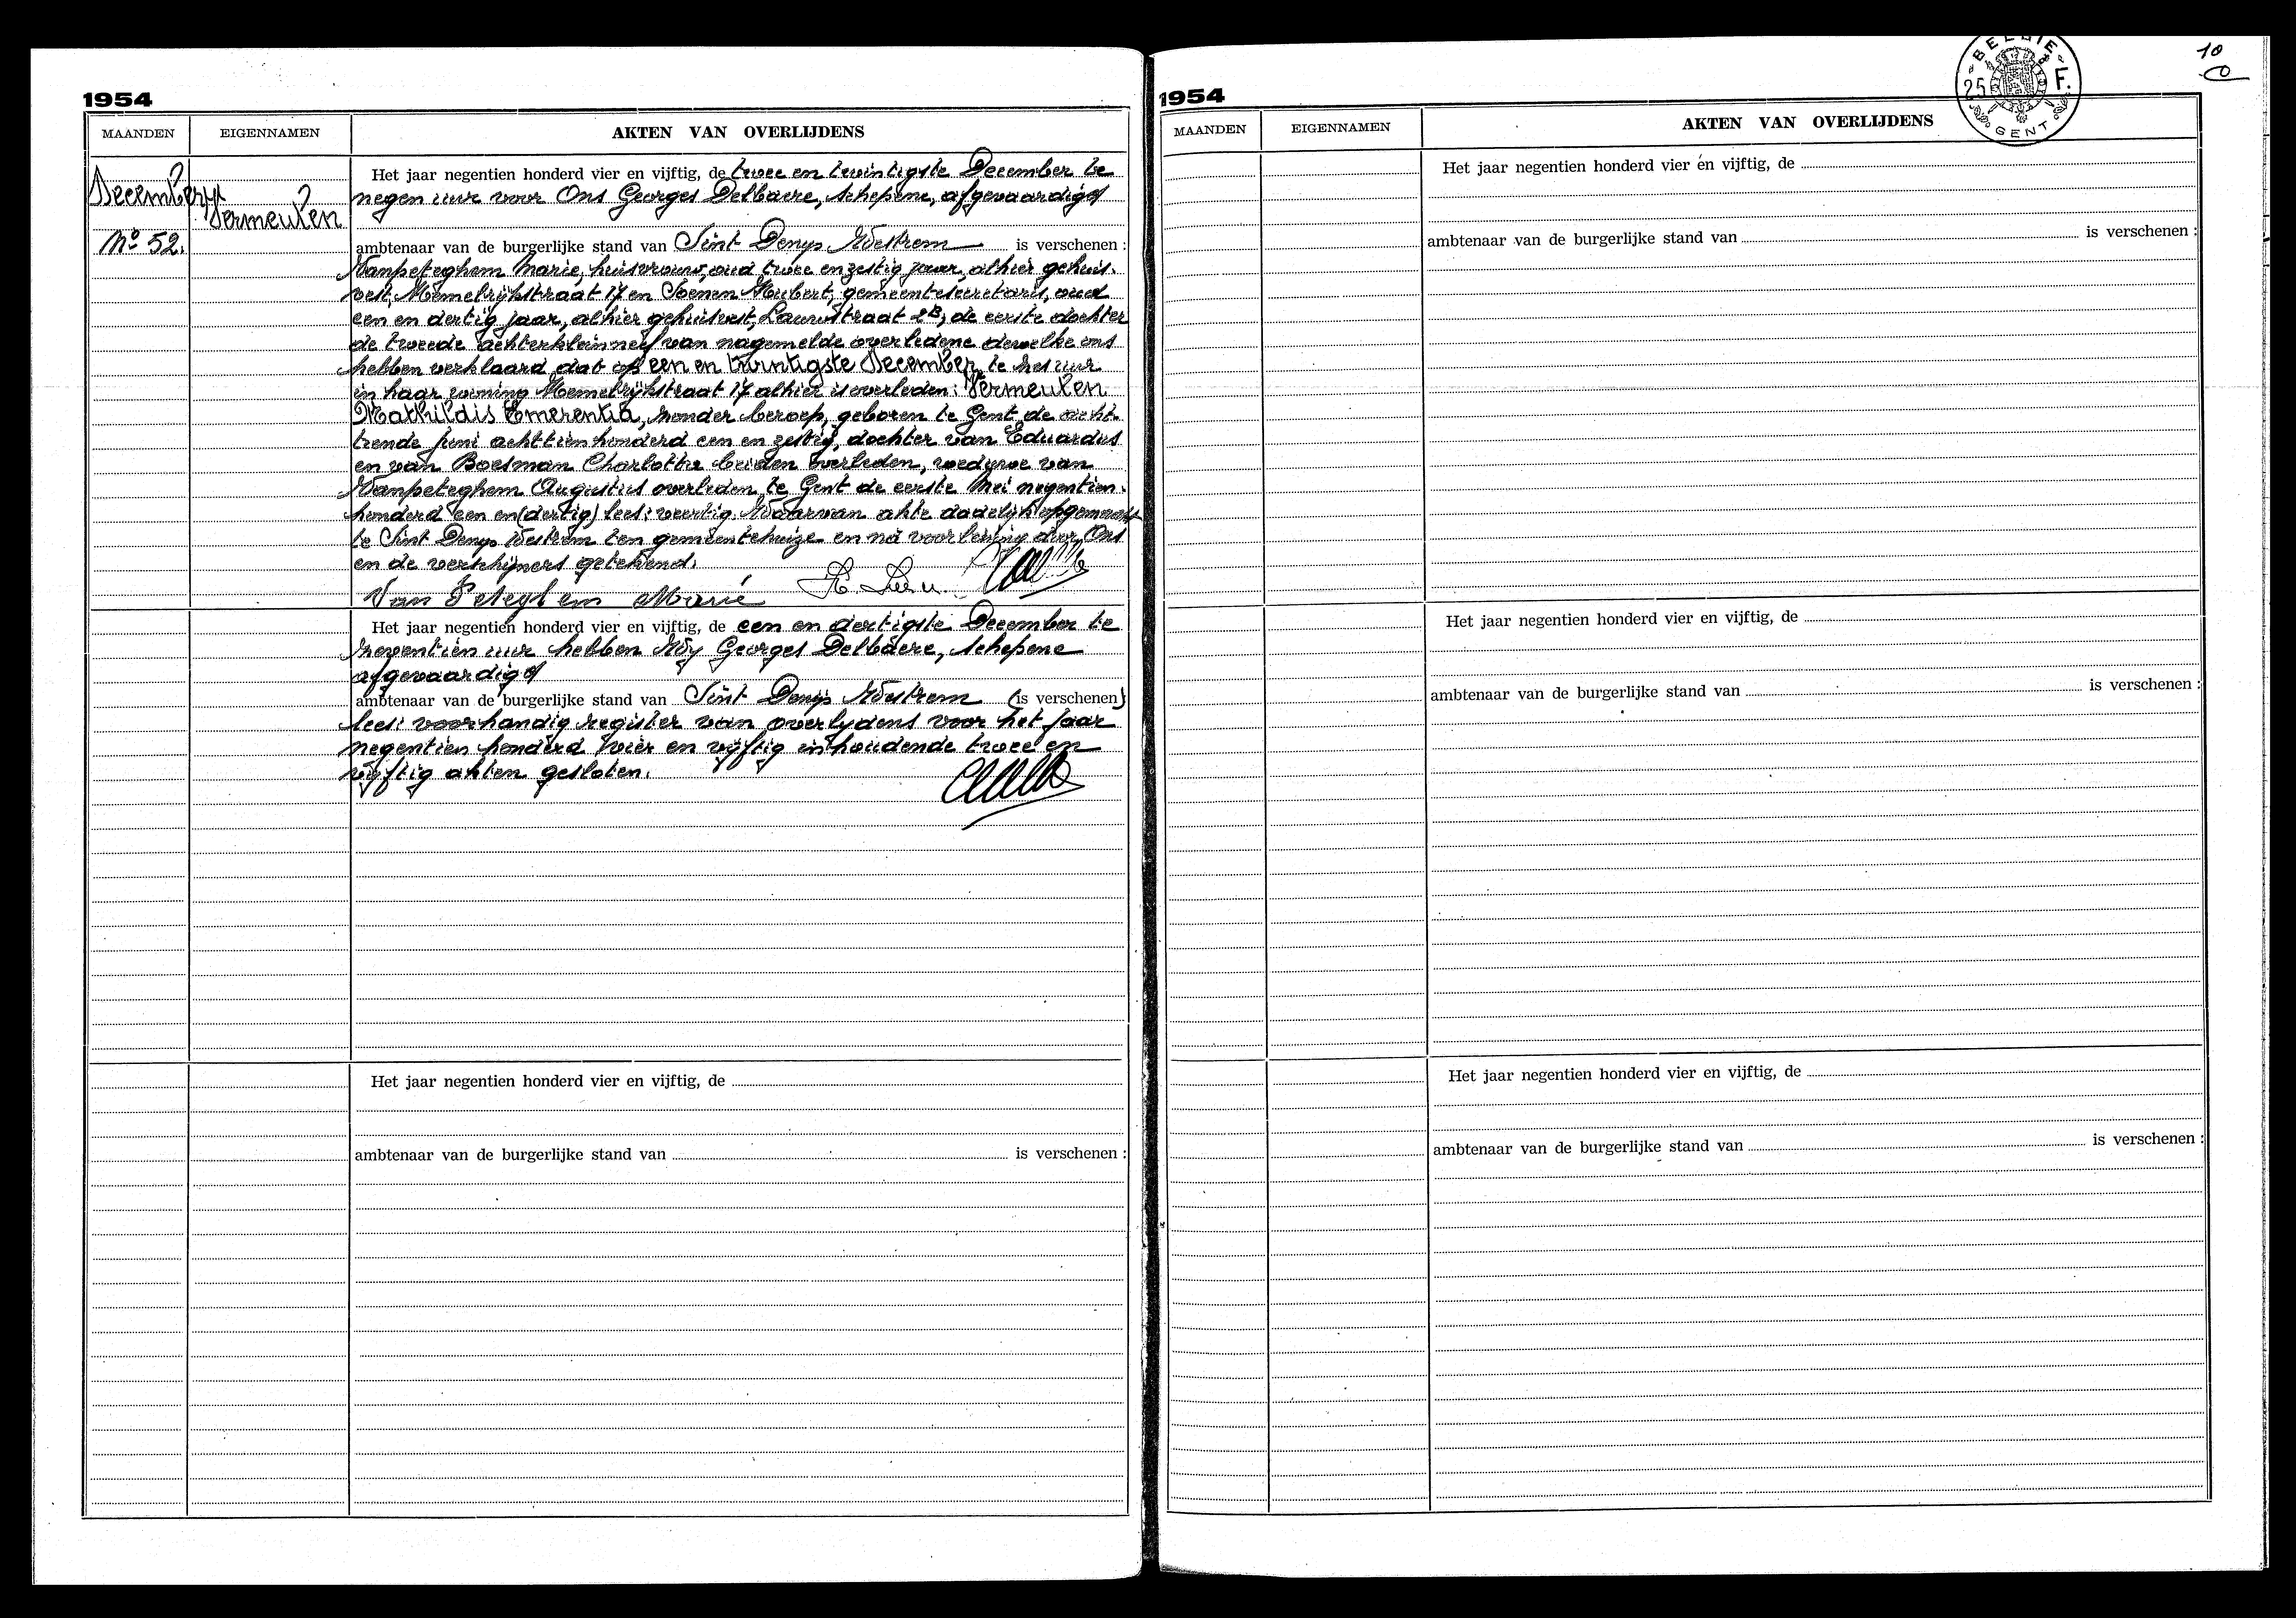 1954
MAANDEN EIGENNAMEN AKTEN VAN OVERLIJDENS
December Vermeulen
No 52.
Het jaar negentien honderd vier en vijftig, de twee en twintigste December te
negen uur voor Ons Georges Delbaere, schepene, afgevaardigd
ambtenaar van de burgerlijke stand van Sint Denijs Westrem is verschenen :
Vanpeteghem Marie, huisvrouw, oud twee en zestig jaar, alhier gehuis-
vest, Memelrijkstraat 17 en Soenen Hubert, gemeentesecretaris, oud
een en dertig jaar, alhier gehuisvest, Laurestraat 2B, de eerste dochter
de tweede achterkleinneef van nagemelde overledene dewelke ons
hebben verklaard dat op een en twintigste December te zes uur
in haar woning Memelrijkstraat 17 alhier is overleden: Vermeulen
Mathildis Emerentia, zonder beroep, geboren te Gent de acht-
tiende juni achttienhonderd een en zestig, dochter van Eduardus
en van Boesman Charlotte beiden overleden, weduwe van
Vanpeteghem Augustus overleden te Gent de eerste Mei negentien-
honderd een en (dertig) lees: veertig. Waarvan akte dadelijk opgemaakt
te Sint Denijs Westrem ten gemeentehuize en na voorlezing door Ons
en de verschijners getekend.
Van Peteghem Marie
Het jaar negentien honderd vier en vijftig, de een en dertigste December te
zeventien uur hebben Wij Georges Delbaere, schepene
afgevaardigd
ambtenaar van de burgerlijke stand van Sint Denijs Westrem (is verschenen)
lees: voorhandig register van overlijdens voor het jaar
negentien honderd vier en vijftig inhoudende twee en
vijftig akten gesloten.
Het jaar negentien honderd vier en vijftig, de
ambtenaar van de burgerlijke stand van is verschenen :
1954
BELGIE 25 F. GENT
10
MAANDEN EIGENNAMEN AKTEN VAN OVERLIJDENS
Het jaar negentien honderd vier en vijftig, de
ambtenaar van de burgerlijke stand van is verschenen :
Het jaar negentien honderd vier en vijftig, de
ambtenaar van de burgerlijke stand van is verschenen :
Het jaar negentien honderd vier en vijftig, de
ambtenaar van de burgerlijke stand van is verschenen :